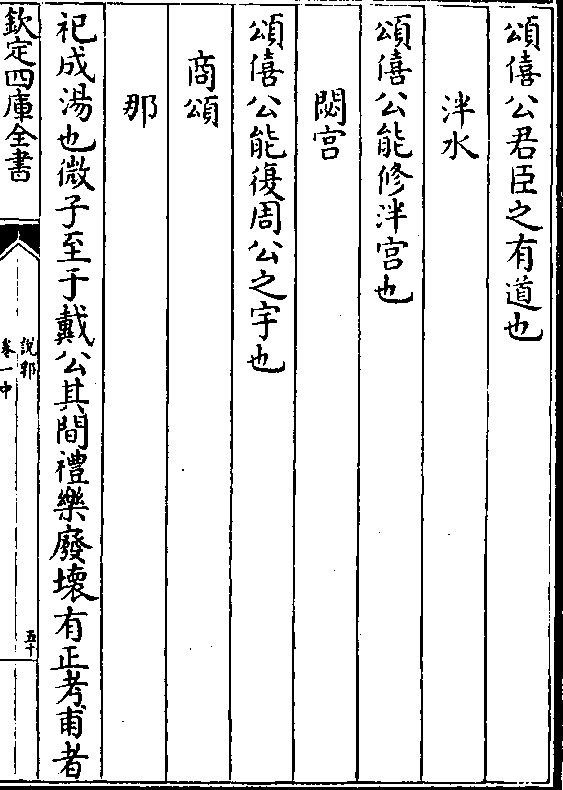 頌僖公君臣之有道也
泮水
頌僖公能修泮宫也
閟宫
頌僖公能復周公之宇也
商頌
那
祀成湯也微子至于戴公其間禮樂廢壊有正考甫者
欽定四庫全書
説郛
卷一中
五十